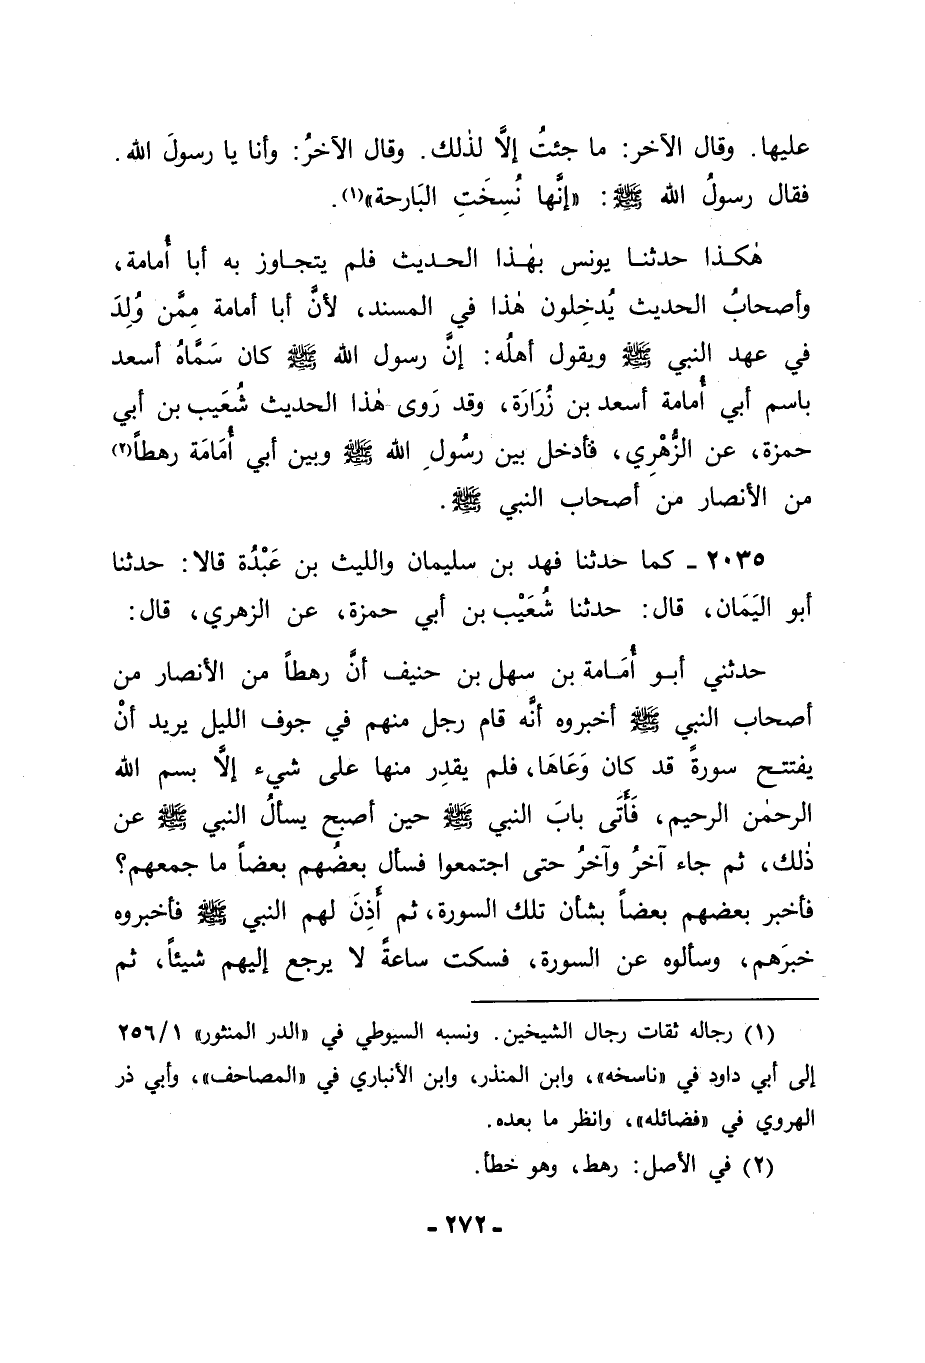 عليها. وقال الآخر: ما جئتُ إلَّا لذٰلك. وقال الآخرُ: وأنا يا رسولَ الله.
فقال رسولُ الله ﷺ: «إنَّها نُسِخَتِ البَارحة»(١).
هٰكـذا حدثنـا يونس بهٰـذا الحـديث فلم يتجـاوز به أبا أُمامة،
وأصحابُ الحديث يُدخِلون هٰذا في المسند، لأنَّ أبا أمامة مِمَّن وُلِدَ
في عهد النبي ﷺ ويقول أهلُه: إنَّ رسول الله ﷺ كان سَمَّاهُ أسعد
باسم أبي أُمامة أسعد بن زُرَارَة، وقد رَوى هٰذا الحديث شُعَيب بن أبي
حمزة، عن الزُّهْرِي، فأدخل بين رسُولِ الله ﷺ وبين أبي أُمَامَة رهطاً(٢)
من الأنصار من أصحاب النبي ﷺ.
٢٠٣٥ ـ كما حدثنا فهد بن سليمان والليث بن عَبْدُة قالا: حدثنا
أبو اليَمَان، قال: حدثنا شُعَيْب بن أبي حمزة، عن الزهري، قال:
حدثني أبـو أُمَـامة بن سهل بن حنيف أنَّ رهطاً من الأنصار من
أصحاب النبي ﷺ أخبروه أنَّه قام رجل منهم في جوف الليل يريد أنْ
يفتتـح سورةً قد كان وَعَاهَا، فلم يقدِر منها على شيء إلَّا بسم الله
الرحمٰن الرحيم، فَأَتَى بابَ النبي ﷺ حين أصبح يسألُ النبي ﷺ عن
ذٰلك، ثم جاء آخرُ وآخرُ حتى اجتمعوا فسأل بعضُهم بعضاً ما جمعهم؟
فأخبر بعضهم بعضاً بشأن تلك السورة، ثم أَذِنَ لهم النبي ﷺ فأخبروه
خبرَهم، وسألوه عن السورة، فسكت ساعةً لا يرجع إليهم شيئاً، ثم
(١) رجاله ثقات رجال الشيخين. ونسبه السيوطي في «الدر المنثور» ٢٥٦/١
إلى أبي داود في «ناسخه»، وابن المنذر، وابن الأنباري في «المصاحف»، وأبي ذر
الهروي في «فضائله»، وانظر ما بعده.
(٢) في الأصل: رهط، وهو خطأ.
ـ ٢٧٢ ـ